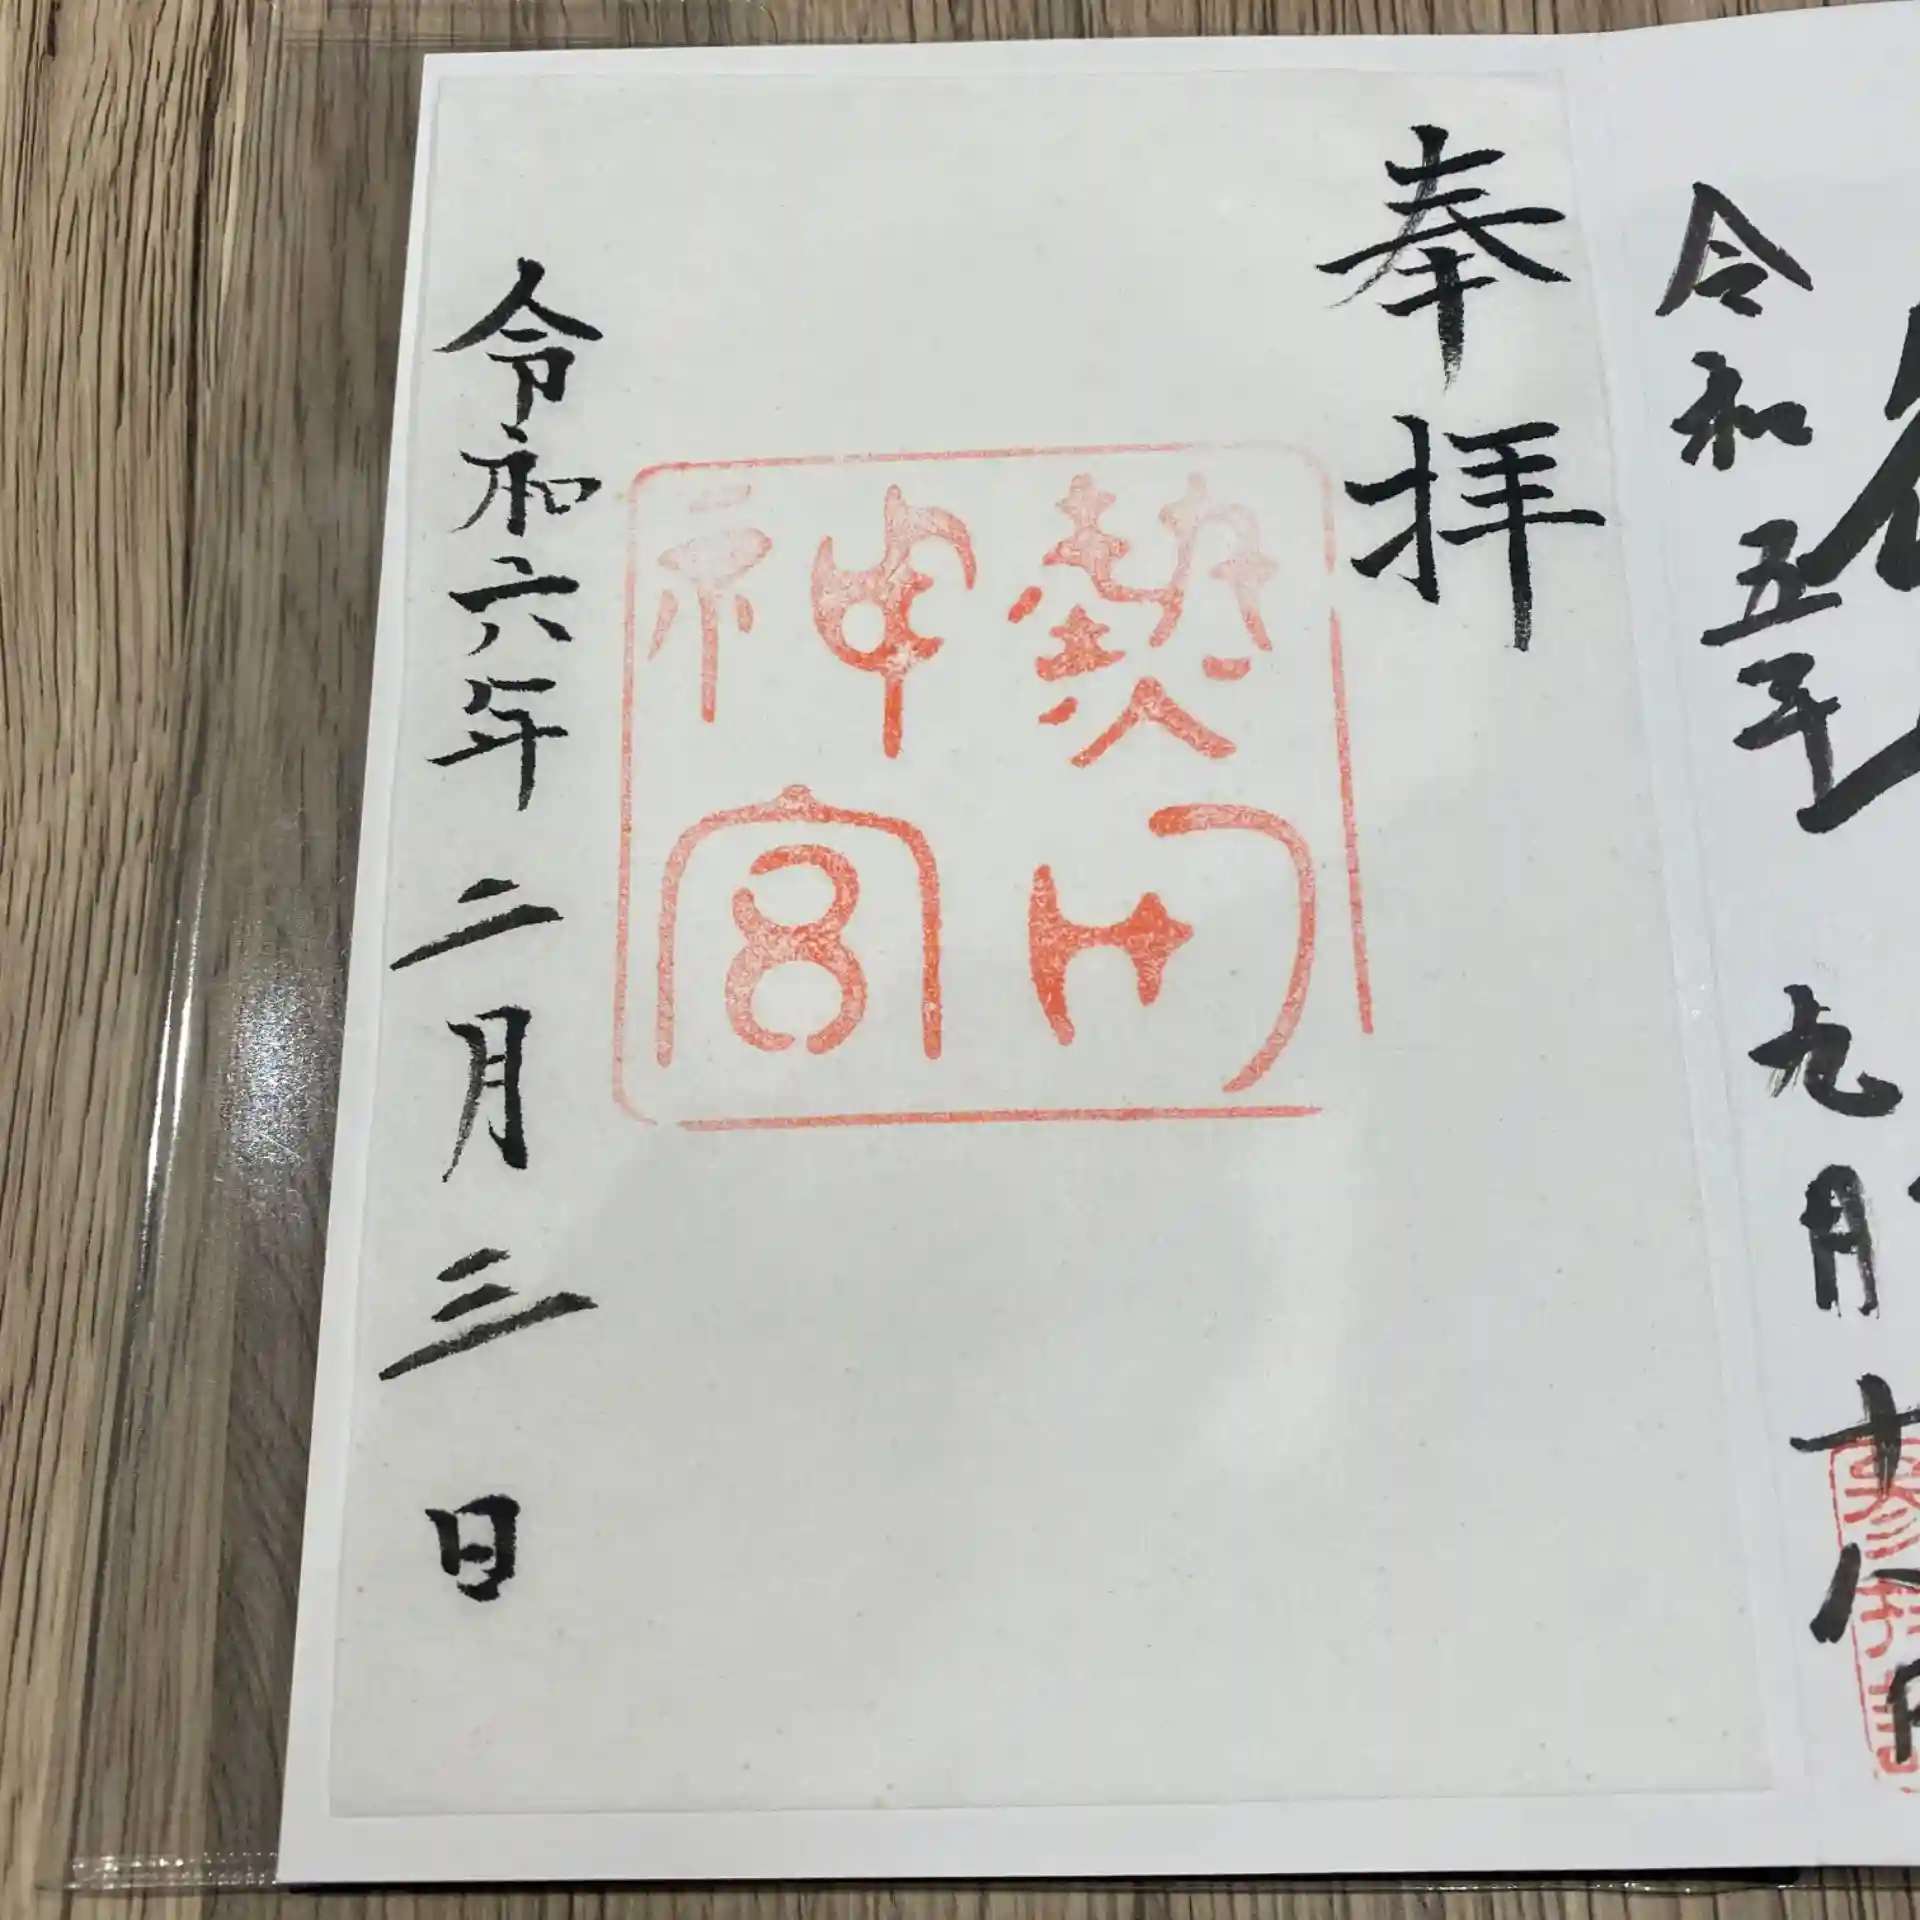 令和五年 九月十八日
奉拝
熱田
神宮
令和六年 二月三日